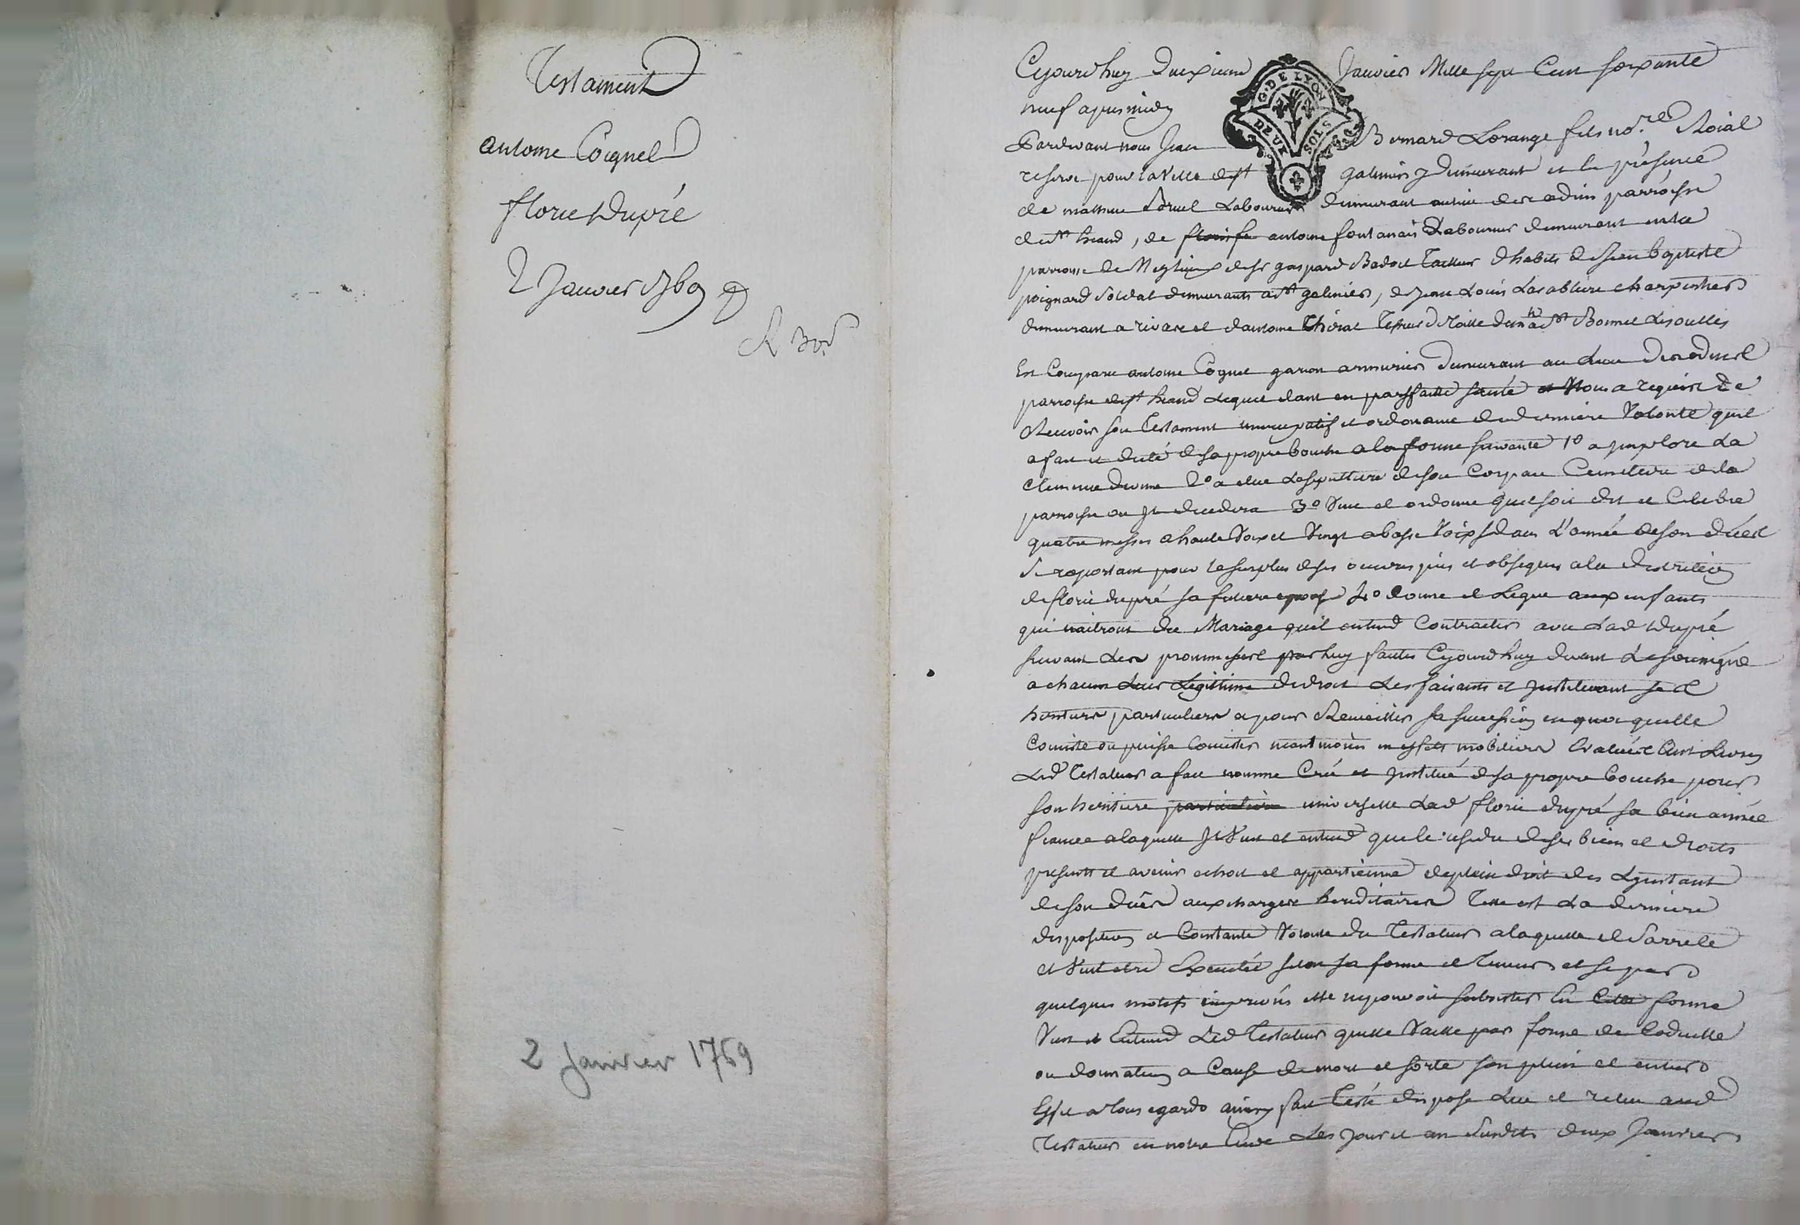 Testament
antoine Coignet
florie dupré
2 Janvier 1769
R 30s
2 Janvier 1769
Cejourdhuy deuxieme Janvier Mille sept Cent soixante
neuf apres midy
G. DE LYON
DEUX SOLS
Pardevant nous Jean Bernard Lorange fils nore Roial
reservé pour la Ville de st galmier y demeurant et en presence
de mathieu Laboureur demeurant parroisse
de st heand, de antoine fontanais Laboureur demeurant
parroisse de de sr gaspard Badol Tailleur dhabits de Jean baptiste
poignard Soldat demeurants a st galmier, de Jean Louis charpentier
demeurant a et dantoine Théval de st Bonnet Les oulles
Est Comparu antoine Cognet garcon armurier demeurant au Lieu
parroisse de st heand Lequel etant en parffaitte santé Nous a requis de
Recevoir son Testament nuncupatif et ordonance de derniere Volonté quil
a fait et dicté de sa propre bouche a la forme suivante 1o a jmploré La
clemence divine 2o a elue La sepulture de son Corp au Cemetiere de la
parroisse ou Jl decedera 3o Veut et ordonne quil soit dit et Celebré
quatre messes a haute Voix et Vingt a basse Voix dans L'année de son décést
Se raportant pour le surplus de ses oeuvres pies et obseques a la discretion
de florie dupré sa future epouse 4o donne et Legue aux enfants
qui naitront du Mariage quil entend Contracter avec Lad dupré
suivant Les promesses par luy faites Cejourdhuy devant Le soussigné
a chacun Leur Legittime de droit Les faisants et Jnstituant
heritiers particuliers a pour Recueillir sa succession en quoi quelle
Consiste ou puisse Consister neantmoins en effets mobiliers évalués Cent Livres
Led Testateur a fait nommé Créé et Jnstitué de sa propre bouche pour
son heritiere particuliere universelle Lad florie dupré sa bien aimée
fiancée a laquelle Jl Veut et entend que le residu de ses biens et droits
presents et avenir echoit et appartienne de plein droit des Ljnstant
de son décès aux charges hereditaires Telle est La derniere
disposition et Constante Volonté du Testateur a laquelle il Sarrete
et Veut etre Executée selon sa forme et Teneur et si par
quelques motifs imprevús elle ne pouvoit subsister En Cette forme
Veut et Entend Led Testateur quelle Vaille par forme de Codicille
ou donation a Cause de mort et sorte son plein et entier
Effet a tous egards ainsy fait Testé disposé Lu et relu aud
Testateur en notre Etude Les Jour et an Susdits deux Janvier